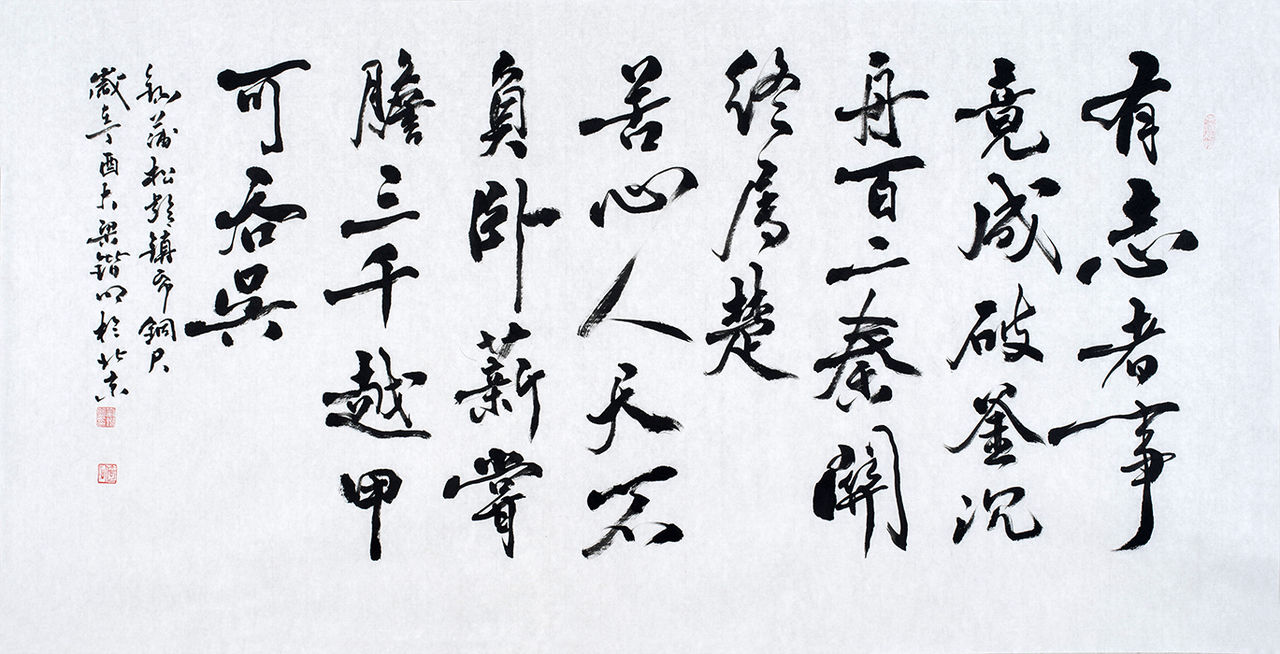 有志者事
竟成破釜沉
舟百二秦關
終属楚
苦心人天不
負卧薪嘗
膽三千越甲
可吞吳
錄蒲松齡鎮帋銅尺
歲辛酉大梁鍇明於北京